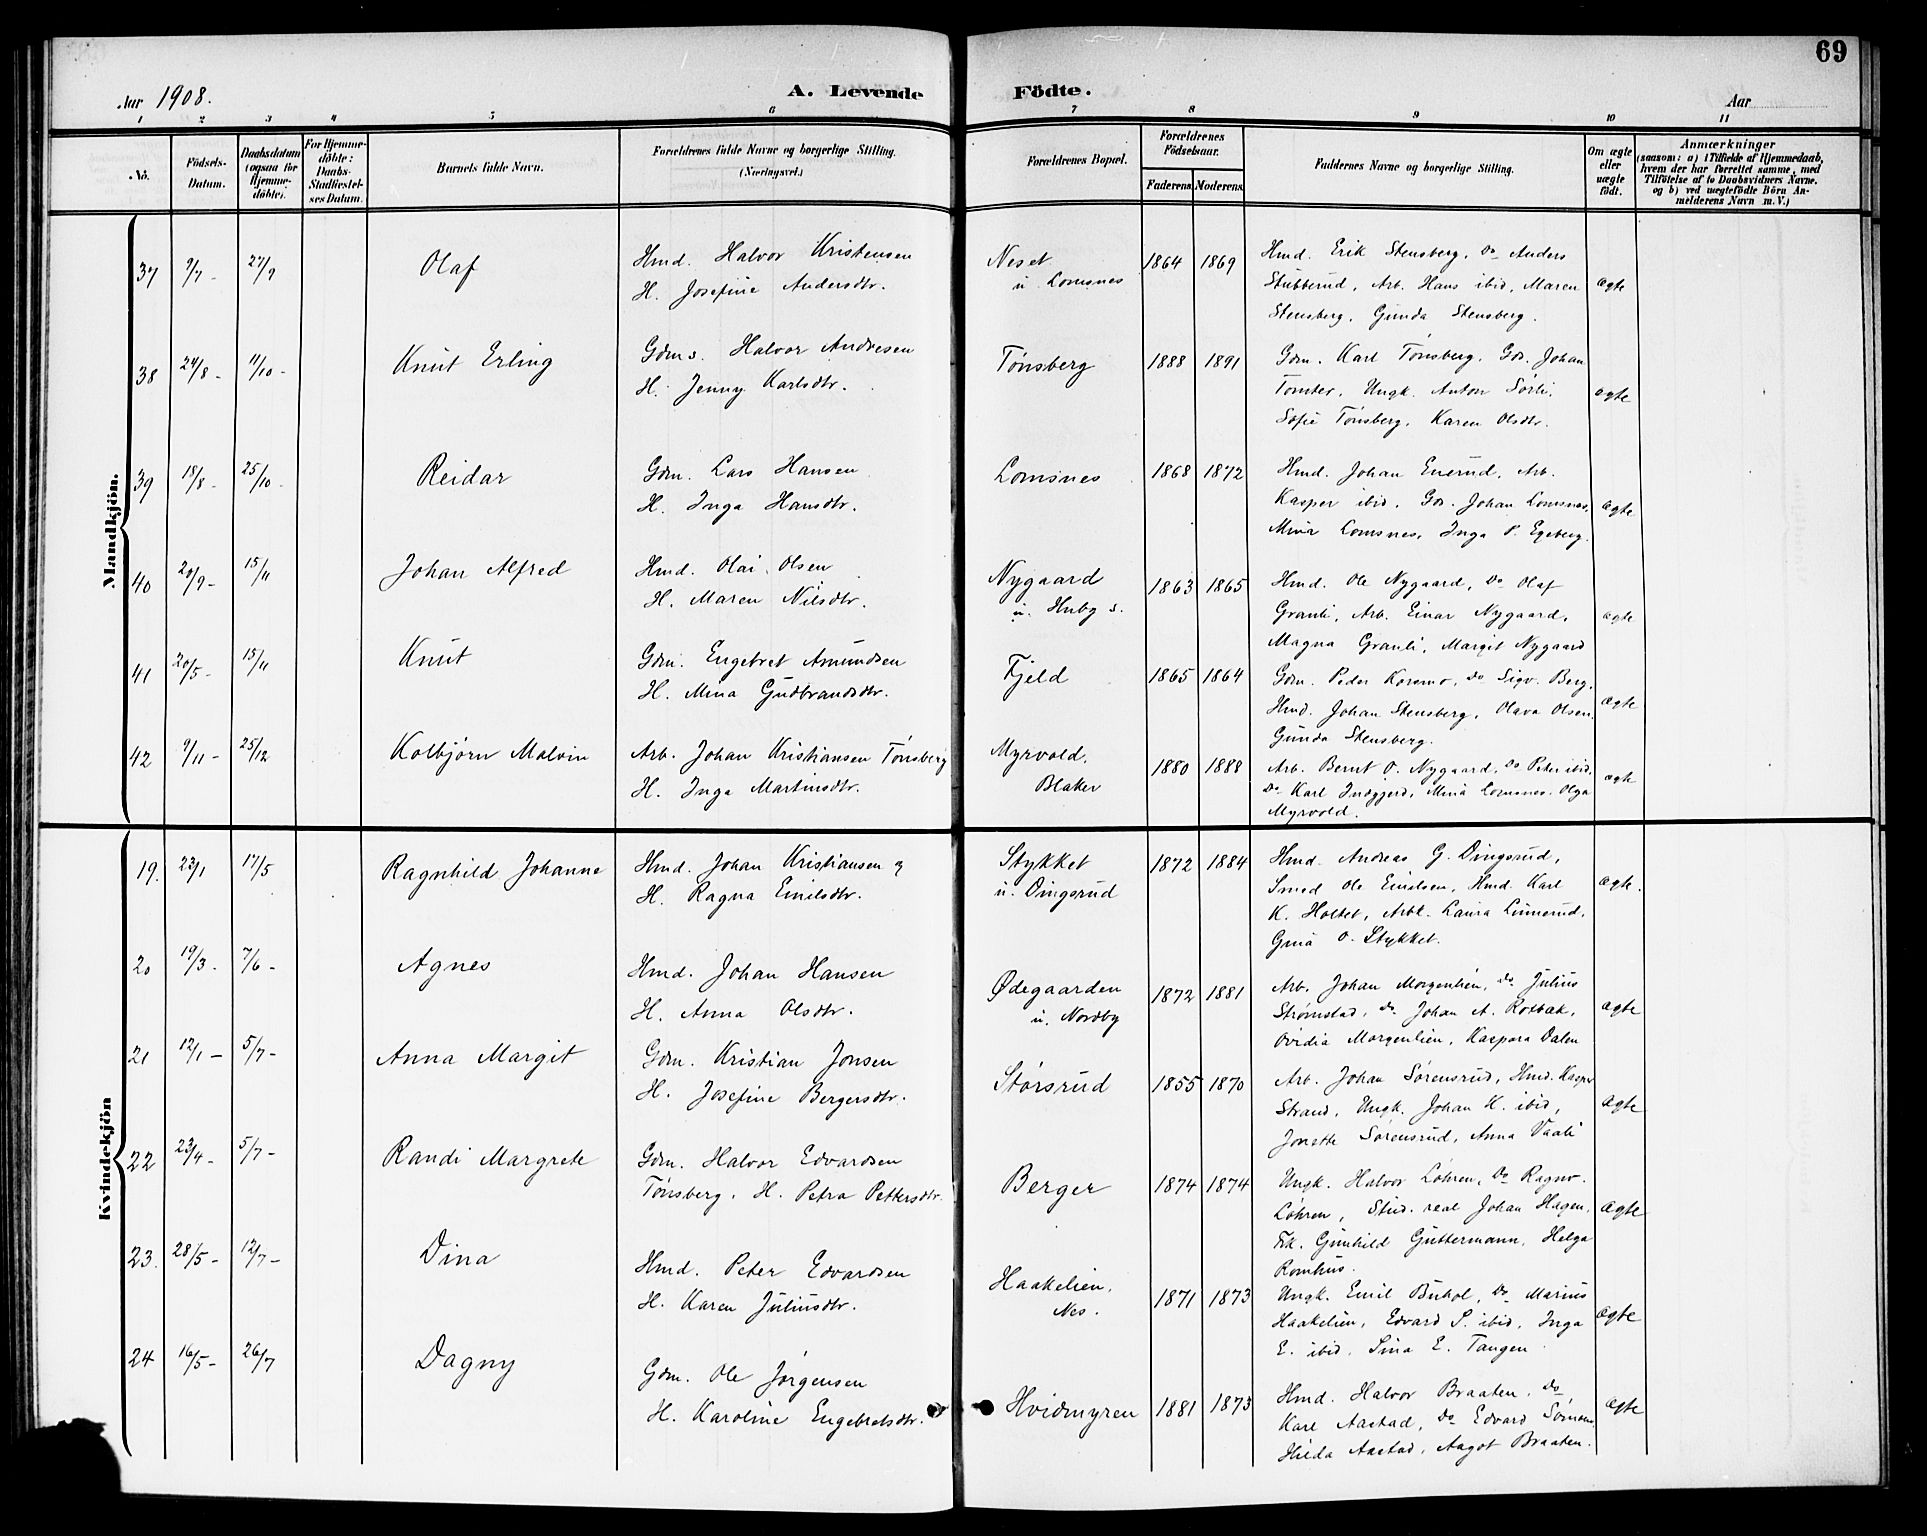 69
Aar 1908.
A. Levende Födte.
Aar
1 2 3 4 5 6 7 8 9 10 11
No.
Födsels-Datum.
Daabsdatum (ogsaa for Hjemme-döbte).
For Hjemme-döbte: Daabs-Stadfæstel-ses Datum.
Barnets fulde Navn.
Forældrenes fulde Navne og borgerlige Stilling.
(Næringsvei.)
Forældrenes Bopæl.
Forældrenes Födselsaar.
Faderens. Moderens.
Faddernes Navne og borgerlige Stilling.
Om ægte eller uægte födt.
Anmærkninger
(saasom: a) i Tilfælde af Hjemmedaab,
hvem der har forrettet samme, med
Tilföielse af to Daabsvidners Navne,
og b) ved uægtefödte Börn An-
melderens Navn m. V.)
Mandkjön.
37 9/7- 27/9 Olaf Hmd. Halvor Kristensen
H. Josefine Andersdtr.
Neset
u. Lomsnes
1864 1869
Hmd. Erik Stensberg, Do Anders
Stubberud, Arb. Hans ibid, Maren
Stensberg, Gunda Stensberg.
ægte
38 24/8- 11/10- Knut Erling Gdms. Halvor Andresen
H. Jenny Karlsdtr.
Tønsberg
1888 1891
Gdm. Karl Tønsberg, Gds. Johan
Tomter, Ungk. Anton Sørli,
Sofie Tønsberg, Karen Olsdtr.
ægte
39 18/8- 25/10- Reidar Gdm. Lars Hansen
H. Inga Hansdtr.
Lomsnes
1868 1872
Hmd. Johan Enerud, Arb.
Kasper ibid, Gds. Johan Lomsnes,
Mina Lomsnes, Inga P. Egeberg.
ægte
40 20/9- 15/11 Johan Alfred Hmd. Olai Olsen
H. Maren Nilsdtr.
Nygaard
u. Huby s.
1863 1865
Hmd. Ole Nygaard, Do Olaf
Granli, Arb. Einar Nygaard,
Magna Granli, Margit Nygaard
ægte
41 20/5- 15/11 Knut Gdm. Engebret Amundsen
H. Mina Gudbrandsdtr.
Fjeld
1865 1864
Gdm. Peder Korsmo, Do Sigv. Berg,
Hmd. Johan Stensberg, Olava Olsen
Gunda Stensberg.
ægte
42 9/11- 25/12 Kolbjørn Malvin Arb. Johan Kristiansen Tønsberg
H. Inga Martinsdtr.
Myrvold,
Blaker
1880 1888
Arb. Bernt O. Nygaard, Do Peter ibid,
Do Karl Mina Lomsnes, Olga
Myrvold.
ægte
Kvindekjön
19. 23/1 17/5 Ragnhild Johanne Hmd. Johan Kristiansen og
H. Ragna Emilsdtr.
Stykket
u. Dingsrud
1872 1884
Hmd. Andreas G. Dingsrud,
Smed Ole Emilsen, Hmd. Karl
K. Holtet, Arbk. Laura Linnerud,
Gina O. Stykket.
ægte.
20 19/3- 7/6- Agnes Hmd. Johan Hansen
H. Anna Olsdtr.
Ødegaarden
u. Nordby
1872 1881
Arb. Johan Morgenlien, Do Julius
Strømstad, Do Johan A. Rotbak,
Ovidia Morgenlien, Kaspara Dalen
ægte
21 12/1- 5/7- Anna Margit Gdm. Kristian Jonsen
H. Josefine Bergersdtr.
Størsrud
1855 1870
Arb. Johan Sørensrud, Hmd. Kasper
Strand, Ungk. Johan K. ibid,
Jonette Sørensrud, Anna Vaali
ægte
22 23/4- 5/7- Randi Margrete Gdm. Halvor Edvardsen
Tønsberg, H. Petra Pettersdtr.
Berger
1874 1874
Ungk. Halvor Løhren, Do Ragnv.
Løhren, Stud. real Johan Hagen,
Frk. Gunhild Guttermann, Helga
Romhus.
ægte
23. 28/5- 12/7- Dina Hmd. Peter Edvardsen
H. Karen Juliusdtr.
Haakelien,
Nes.
1871 1873
Ungk. Emil Buhol, Do Marius
Haakelien, Edvard S. ibid, Inga
E. ibid, Sina E. Tangen
ægte
24 16/5- 26/7 Dagny Gdm. Ole Jørgensen
H. Karoline Engebretsdtr.
Hvidmyren
1881 1873
Hmd. Halvor Braaten, Do
Karl Aastad, Do Edvard
Hilda Aastad, Aagot Braaten.
ægte